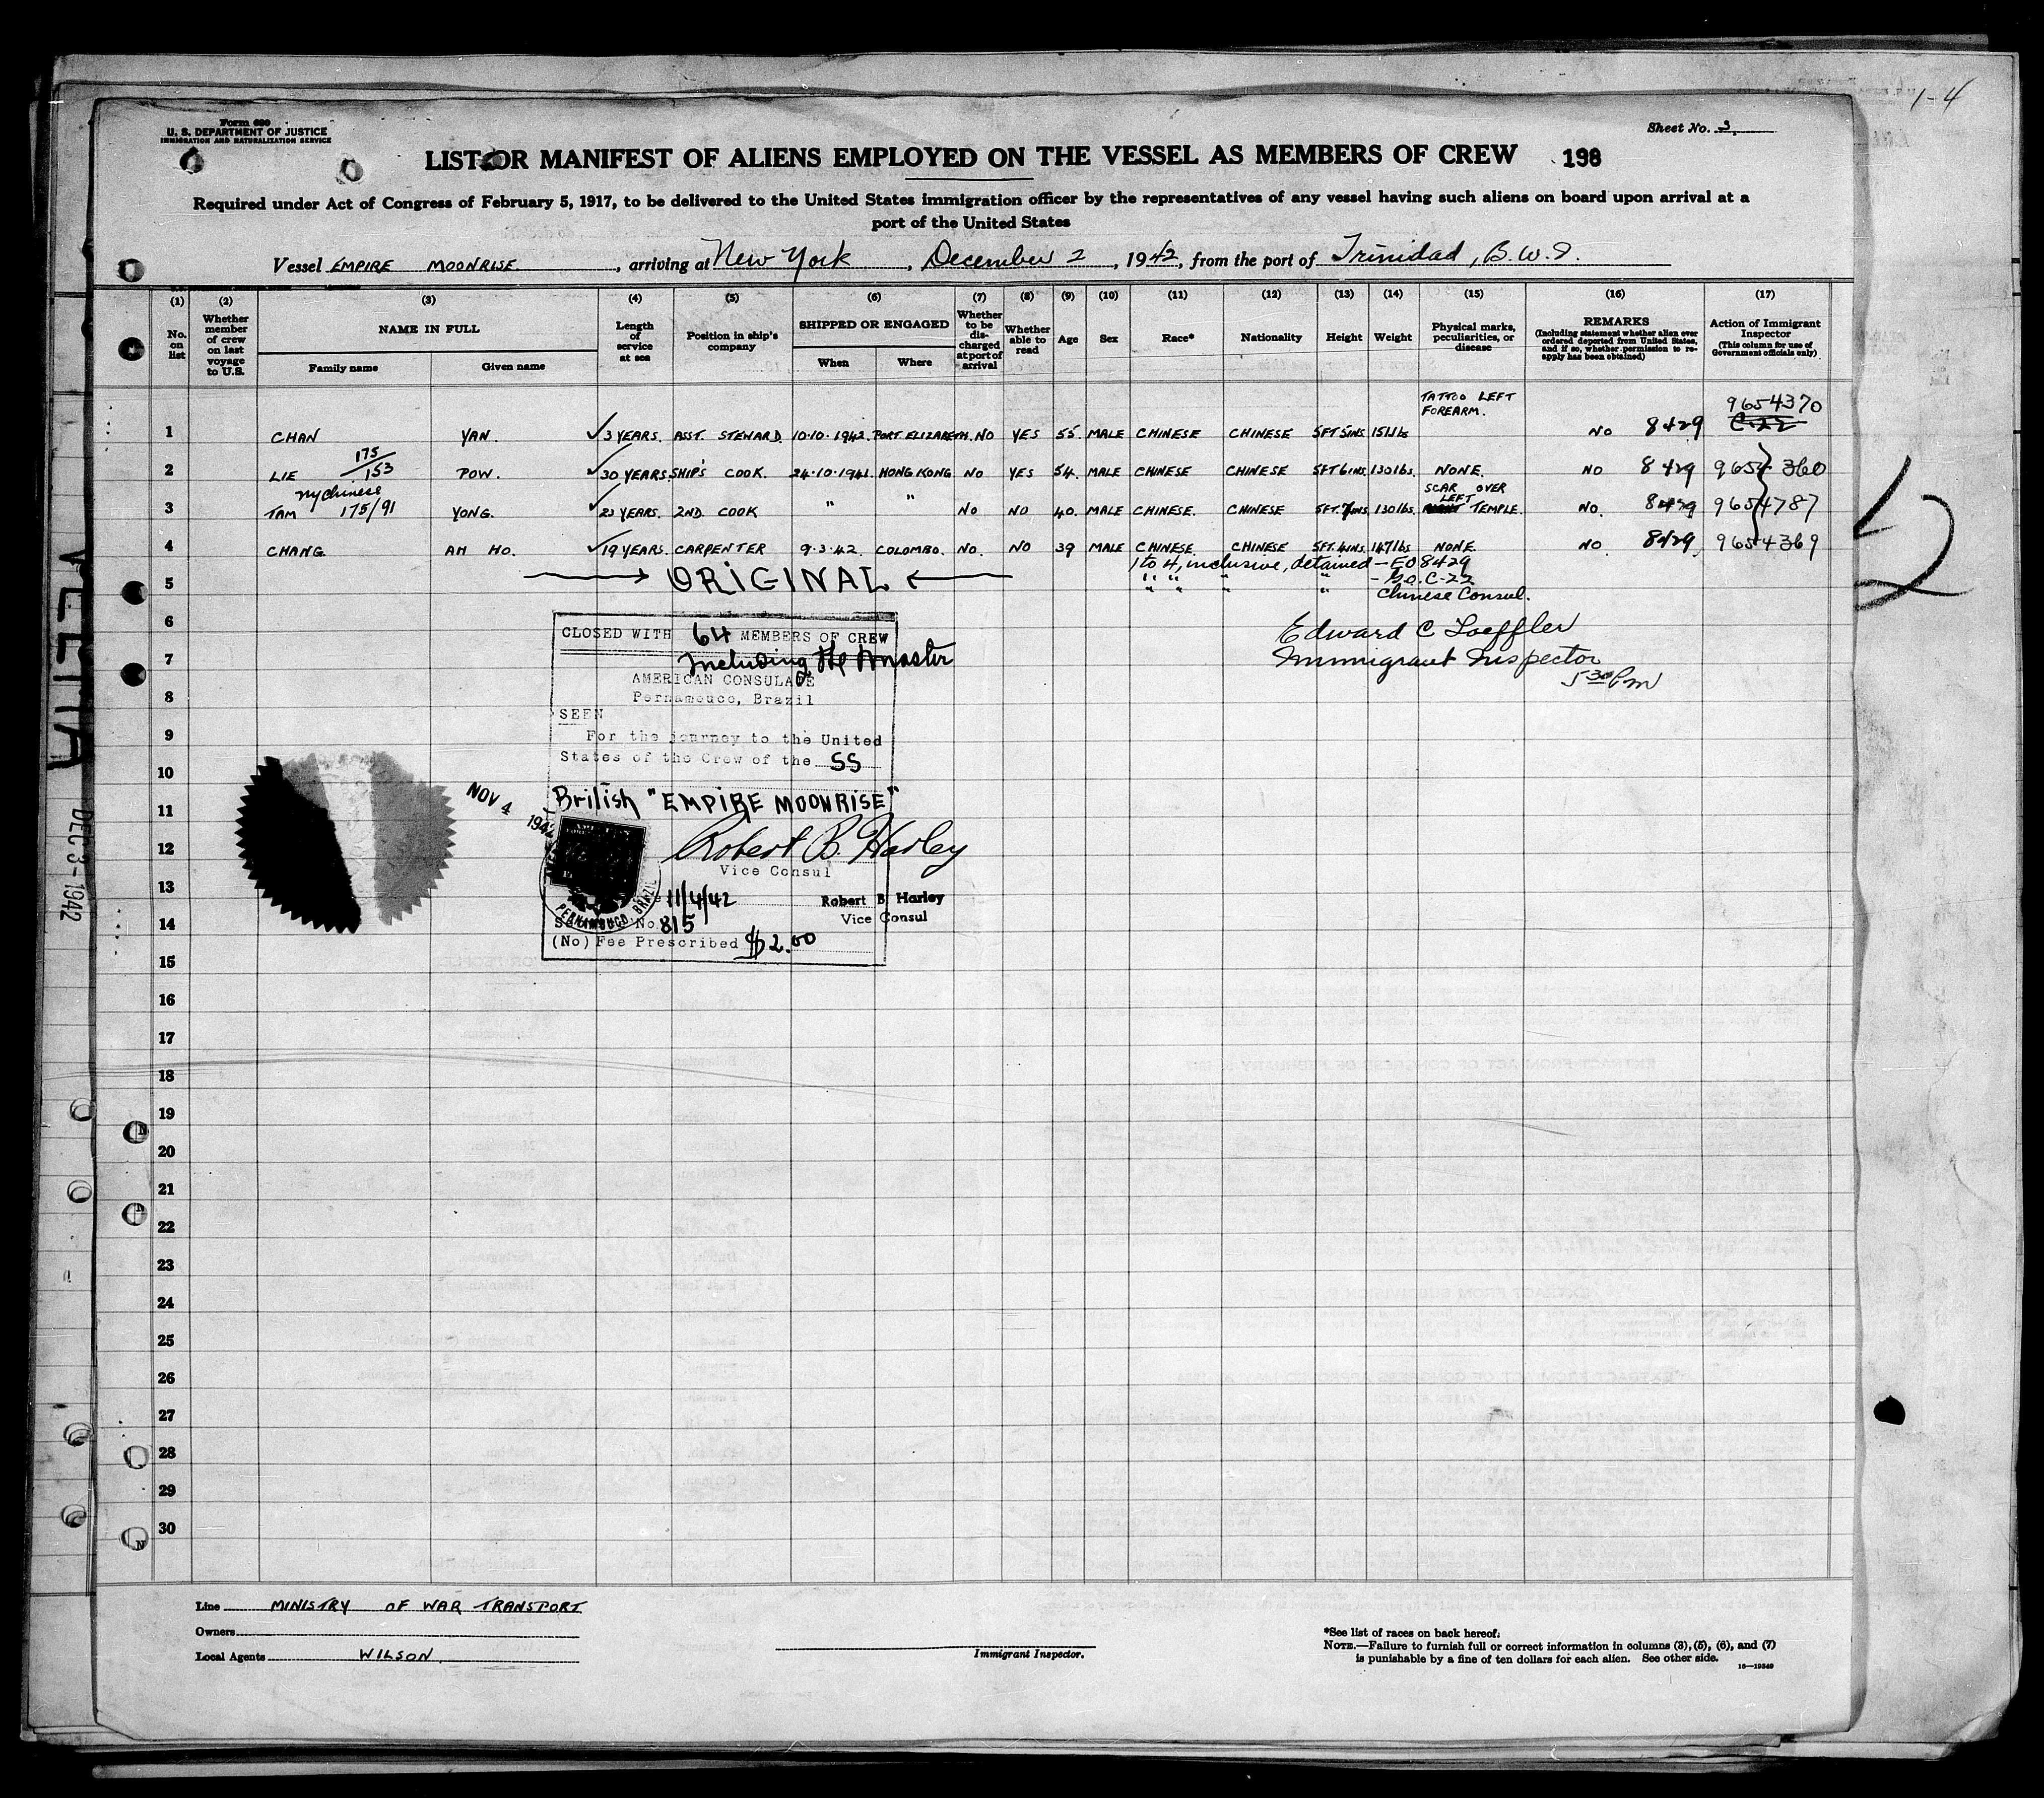 1-4
Form 680
U. S. DEPARTMENT OF JUSTICE
IMMIGRATION AND NATURALIZATION SERVICE
Sheet No. 3.
LIST OR MANIFEST OF ALIENS EMPLOYED ON THE VESSEL AS MEMBERS OF CREW 198
Required under Act of Congress of February 5, 1917, to be delivered to the United States immigration officer by the representatives of any vessel having such aliens on board upon arrival at a
port of the United States
Vessel EMPIRE MOONRISE., arriving at New York, December 2, 1942, from the port of Trinidad, B.W.I.
(1) (2) (3) (4) (5) (6) (7) (8) (9) (10) (11) (12) (13) (14) (15) (16) (17)
No. on list
Whether member of crew on last voyage to U.S.
NAME IN FULL
Family name
Given name
Length of service at sea
Position in ship's company
SHIPPED OR ENGAGED
When
Where
Whether to be discharged at port of arrival
Whether able to read
Age
Sex
Race*
Nationality
Height
Weight
Physical marks, peculiarities, or disease
REMARKS
(Including statement whether alien ever ordered deported from United States, and if so, whether permission to reapply has been obtained)
Action of Immigrant Inspector
(This column for use of Government officials only)
TATTOO LEFT
FOREARM.
9654370
C-22
1 CHAN YAN. ✓ 3 YEARS. ASST. STEWARD. 10·10·1942. PORT ELIZABETH. NO YES 55. MALE CHINESE CHINESE 5FT 5INS 151lbs NO 8429
175/153
2 LIE POW. ✓ 30 YEARS. SHIP'S COOK. 24·10·1941. HONG KONG NO YES 54. MALE CHINESE CHINESE 5FT 6INS. 130lbs. NONE. NO 8429 9654360
ny Chinese
SCAR OVER
LEFT
3 TAM 175/91 YONG. 23 YEARS. 2ND. COOK " " NO NO 40. MALE CHINESE. CHINESE 5FT. 7INS 130lbs. RIGHT TEMPLE. NO. 8429 9654787
4 CHANG. AH HO. ✓ 19 YEARS. CARPENTER 9·3·42. COLOMBO. NO. NO 39 MALE CHINESE. CHINESE 5FT. 4INS. 147lbs NONE. NO. 8429 9654369
1 to 4, inclusive, detained - EO 8429
5 → ORIGINAL ← " " " " - G.O. C-22
" " " " Chinese Consul.
6
7
8
9
10
11
12
13
14
15
16
17
18
19
20
21
22
23
24
25
26
27
28
29
30
Edward C Loeffler
Immigrant Inspector
5 30 Pm
CLOSED WITH 64 MEMBERS OF CREW
Including the Master
AMERICAN CONSULATE
Pernambuco, Brazil
SEEN
For the journey to the United
States of the Crew of the SS
British "EMPIRE MOONRISE"
NOV 4 1942
Robert B. Harley
Vice Consul
11/4/42
Robert B Harley
Vice Consul
PERNAMBUCO, BRAZIL
No. 815
(No) Fee Prescribed $2.00
DEC 3-1942
Line MINISTRY OF WAR TRANSPORT
Owners
Local Agents WILSON.
Immigrant Inspector.
*See list of races on back hereof.
NOTE.—Failure to furnish full or correct information in columns (3), (5), (6), and (7)
is punishable by a fine of ten dollars for each alien. See other side.
16—19349